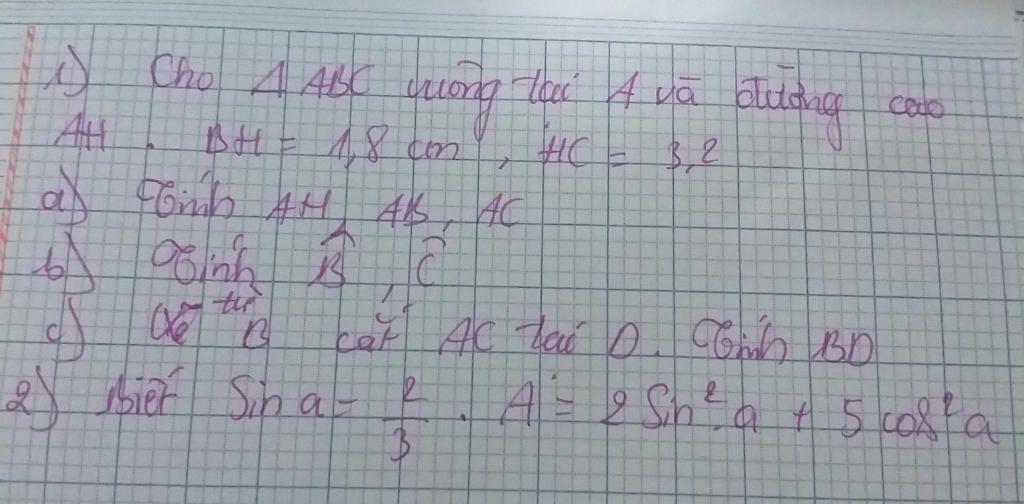 1) Cho Δ ABC vuông tại A và đường cao
AH . BH = 1,8 cm , HC = 3,2
a) Tính AH, AB, AC
b) Tính B̂ , Ĉ
c) từ B cắt AC tại D. Tính BD
2) Biết Sin a = 2/3 . A = 2 Sin² a + 5 cos² a